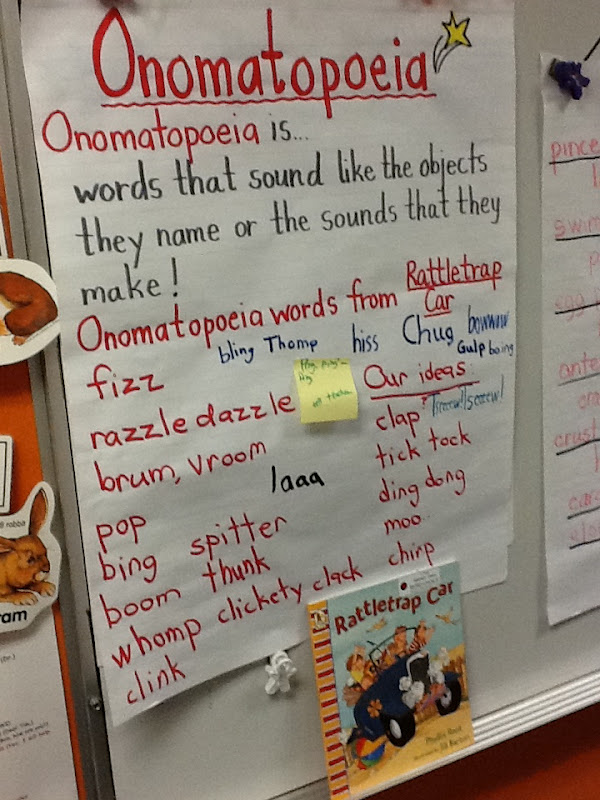 Onomatopoeia
Onomatopoeia is...
words that sound like the objects
they name or the sounds that they
make!
Onomatopoeia words from Rattletrap
Car
bling Thomp hiss Chug bowwww
Gulp boing
fizz
razzle dazzle
brum, vroom
laaa
pop
bing spitter
boom thunk
whomp clickety clack
clink
Our ideas
clap
tick tock
ding dong
moo
chirp
Rattletrap Car
Phyllis Root
pince
swim
egg
ante
crust
ram